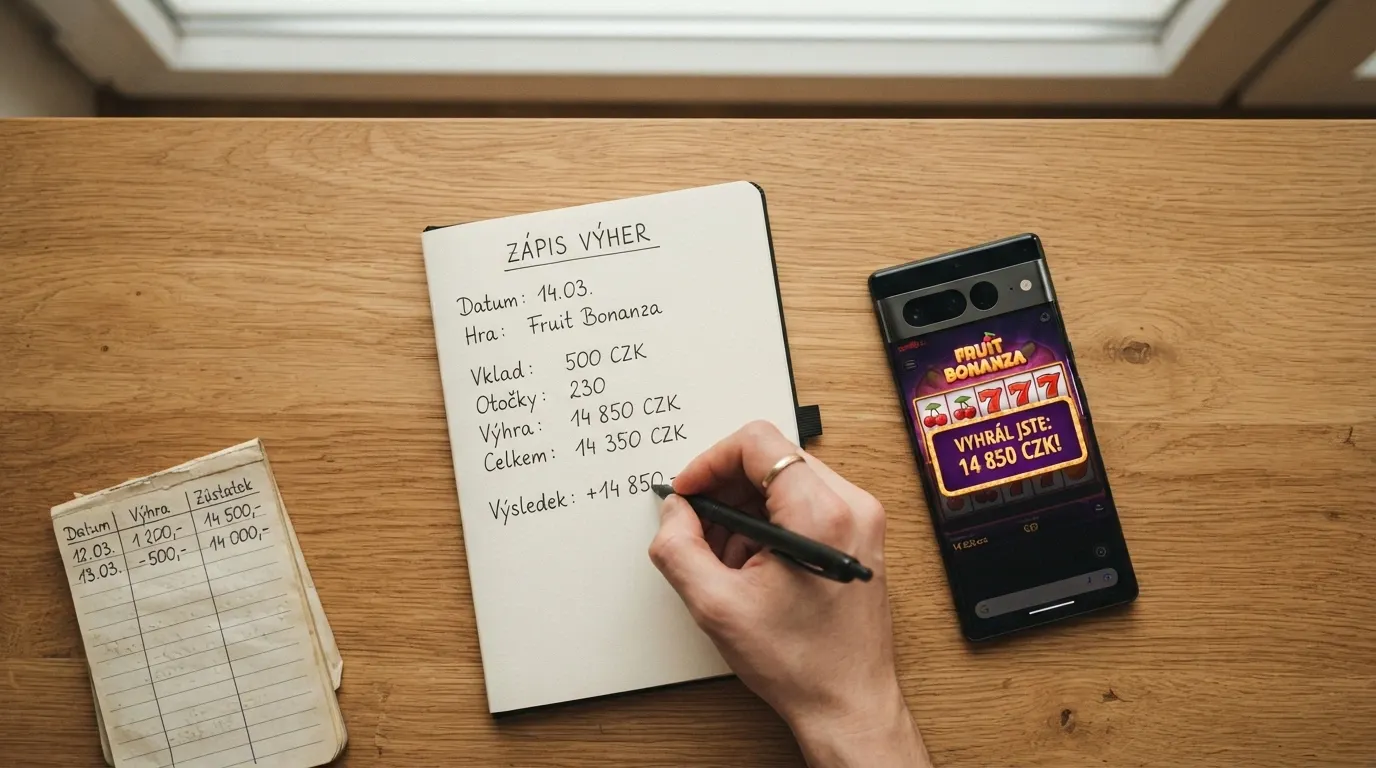 ZÁPIS VÝHER
Datum: 14.03.
Hra: Fruit Bonanza
Vklad: 500 CZK
Otočky: 230
Výhra: 14 850 CZK
Celkem: 14 350 CZK
Výsledek: +14 850,-
Datum Výhra Zůstatek
12.03. 1 200,- 14 500,-
13.03. -500,- 14 000,-
FRUIT
BONANZA
7 7 7
VYHRÁL JSTE:
14 850 CZK!